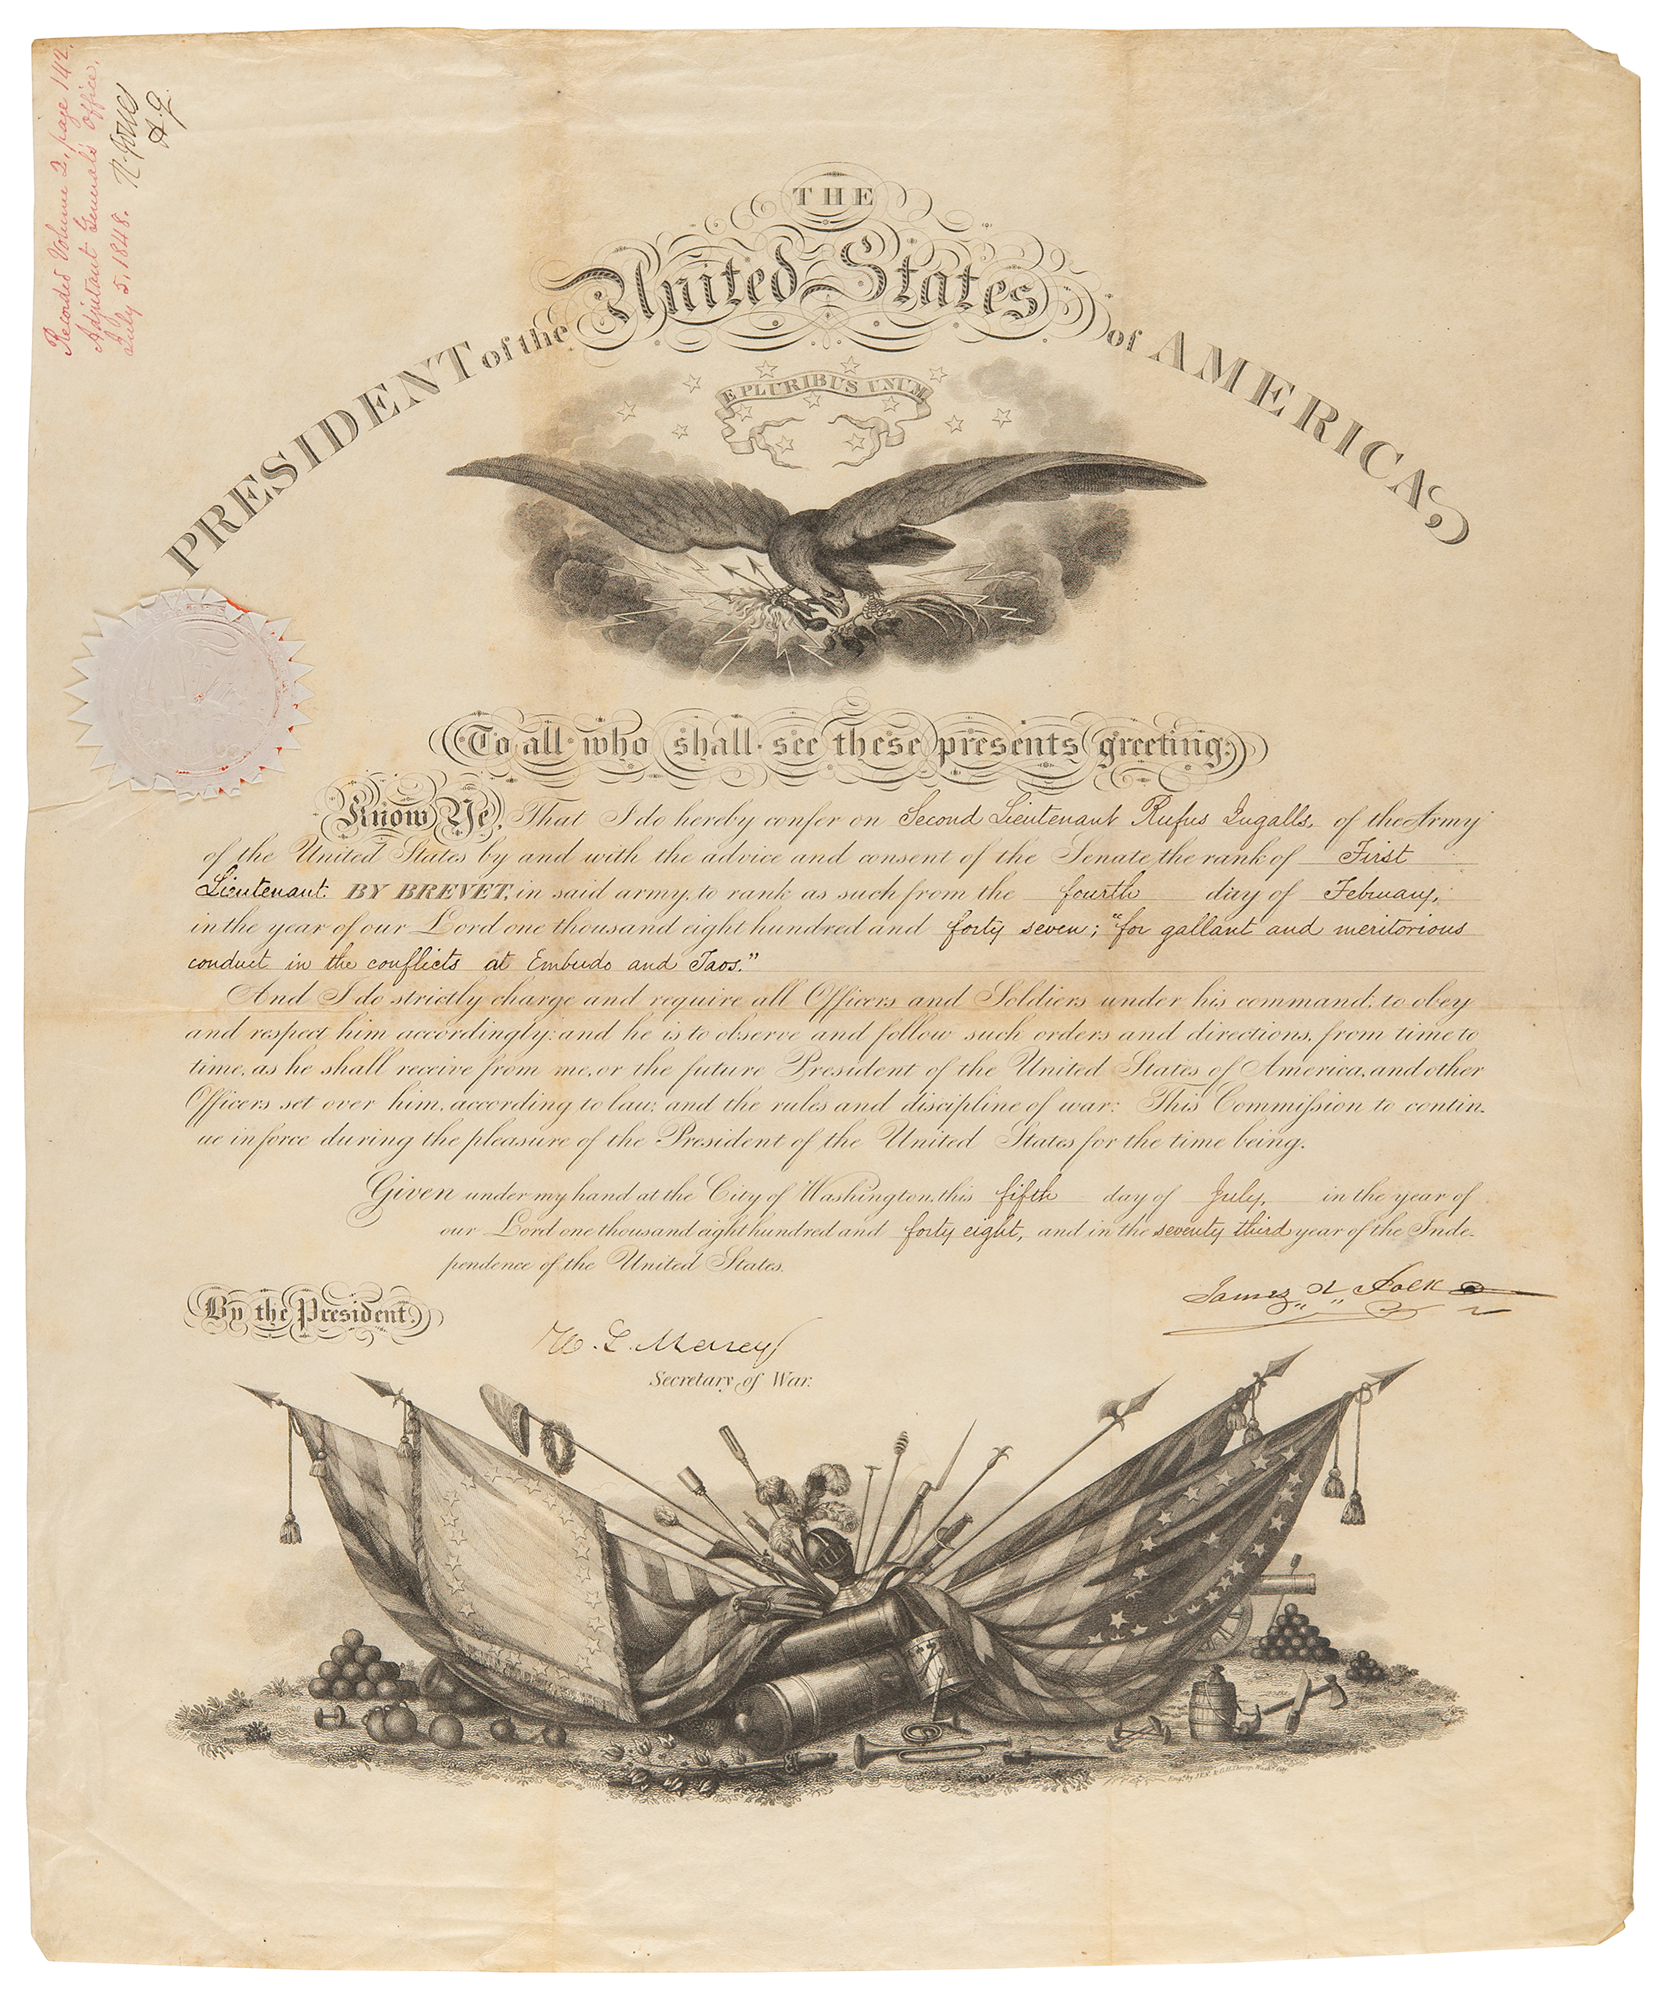 Recorded Volume 2, page 142,
Adjutant General's Office,
July 5, 1848. R. Jones
A. G.
THE
PRESIDENT of the United States of AMERICA,
E PLURIBUS UNUM
To all who shall see these presents greeting:
Know Ye, That I do hereby confer on Second Lieutenant Rufus Ingalls, of the Army
of the United States by and with the advice and consent of the Senate, the rank of First
Lieutenant BY BREVET, in said army, to rank as such from the fourth day of February,
in the year of our Lord one thousand eight hundred and forty seven; "for gallant and meritorious
conduct in the conflicts at Embudo and Taos."
And I do strictly charge and require all Officers and Soldiers under his command, to obey
and respect him accordingly: and he is to observe and follow such orders and directions, from time to
time, as he shall receive from me, or the future President of the United States of America, and other
Officers set over him, according to law; and the rules and discipline of war: This Commiſsion to contin-
ue in force during the pleasure of the President of the United States for the time being.
Given under my hand at the City of Washington, this fifth day of July, in the year of
our Lord one thousand eight hundred and forty eight, and in the seventy third year of the Inde-
pendence of the United States.
James K Polk
By the President,
W. L. Marcy
Secretary of War.